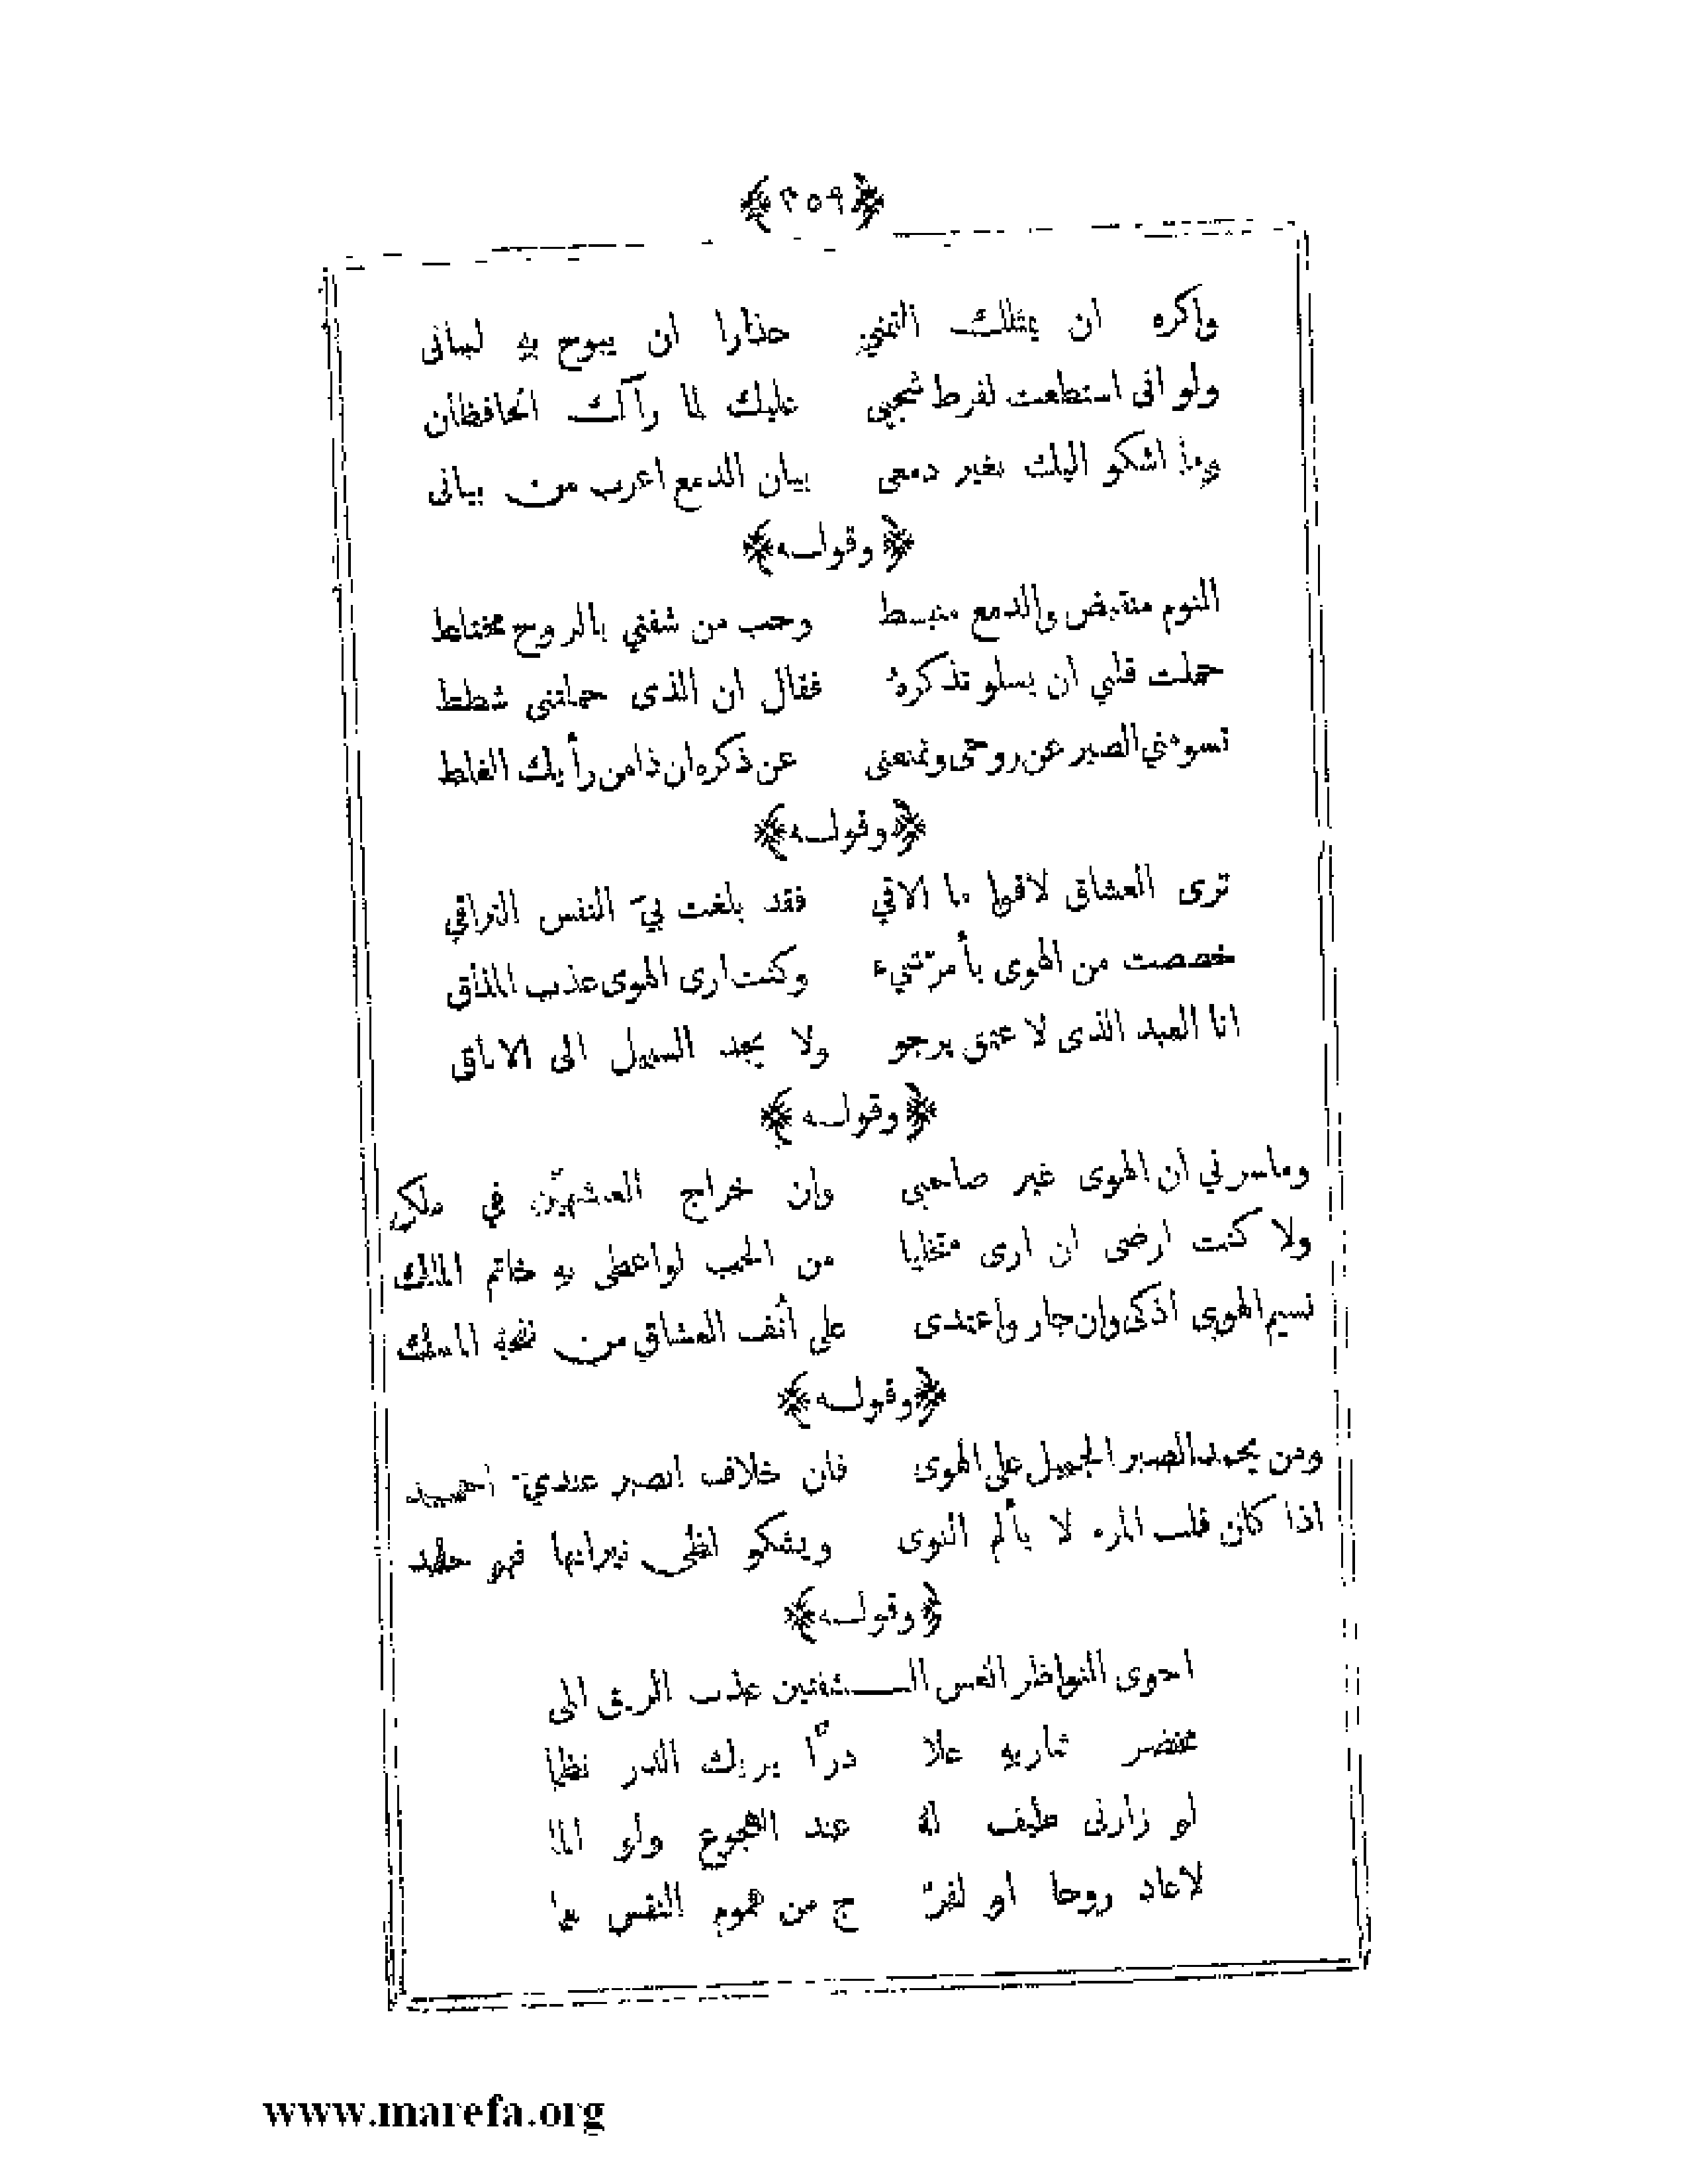 ﴿٣٥٩﴾
واكره ان يمثلك التمني حذارا ان يبوح به لساني
ولو انى استطعت لفرط شجبي عليك لما رآك الحافظان
وما اشكو اليك بغير دمعى بيان الدمع اعرب من بيانى
﴿وقوله﴾
النوم منقبض والدمع منبسط وحب من شفني بالروح مختلط
حملت قلبي ان يسلو تذكره فقال ان الذى حملتنى شطط
تسومني الصبر عن روحى وتمنعنى عن ذكره ان ذا من رأيك الغلط
﴿وقوله﴾
ترى العشاق لاقوا ما الاقي فقد بلغت بي النفس التراقي
خصصت من الهوى بأمرّ شيء وكنت ارى الهوى عذب المذاق
انا العبد الذى لا عتق يرجو ولا يجد السبيل الى الاباق
﴿وقوله﴾
وما سرني ان الهوى غير صاحبى وان خراج المشرقين في ملكي
ولا كنت ارضى ان ارى متخليا من الحب لو اعطى به خاتم الملك
نسيم الهوى اذكى وان جار واعتدى على أنف العشاق من نفحة المسك
﴿وقوله﴾
ومن يحمد الصبر الجميل على الهوى فان خلاف الصبر عندي احمد
اذا كان قلب المرء لا يألم النوى ويشكو لظى نيرانها فهو جلمد
﴿وقوله﴾
احوى النواظر العس الـشفتين عذب الريق المى
مخضر شاربه علا درّا يريك الدر نظما
لو زارنى طيف له عند الهجوع ولو الما
لاعاد روحا او لفرّ ج من هموم النفس هما
www.marefa.org